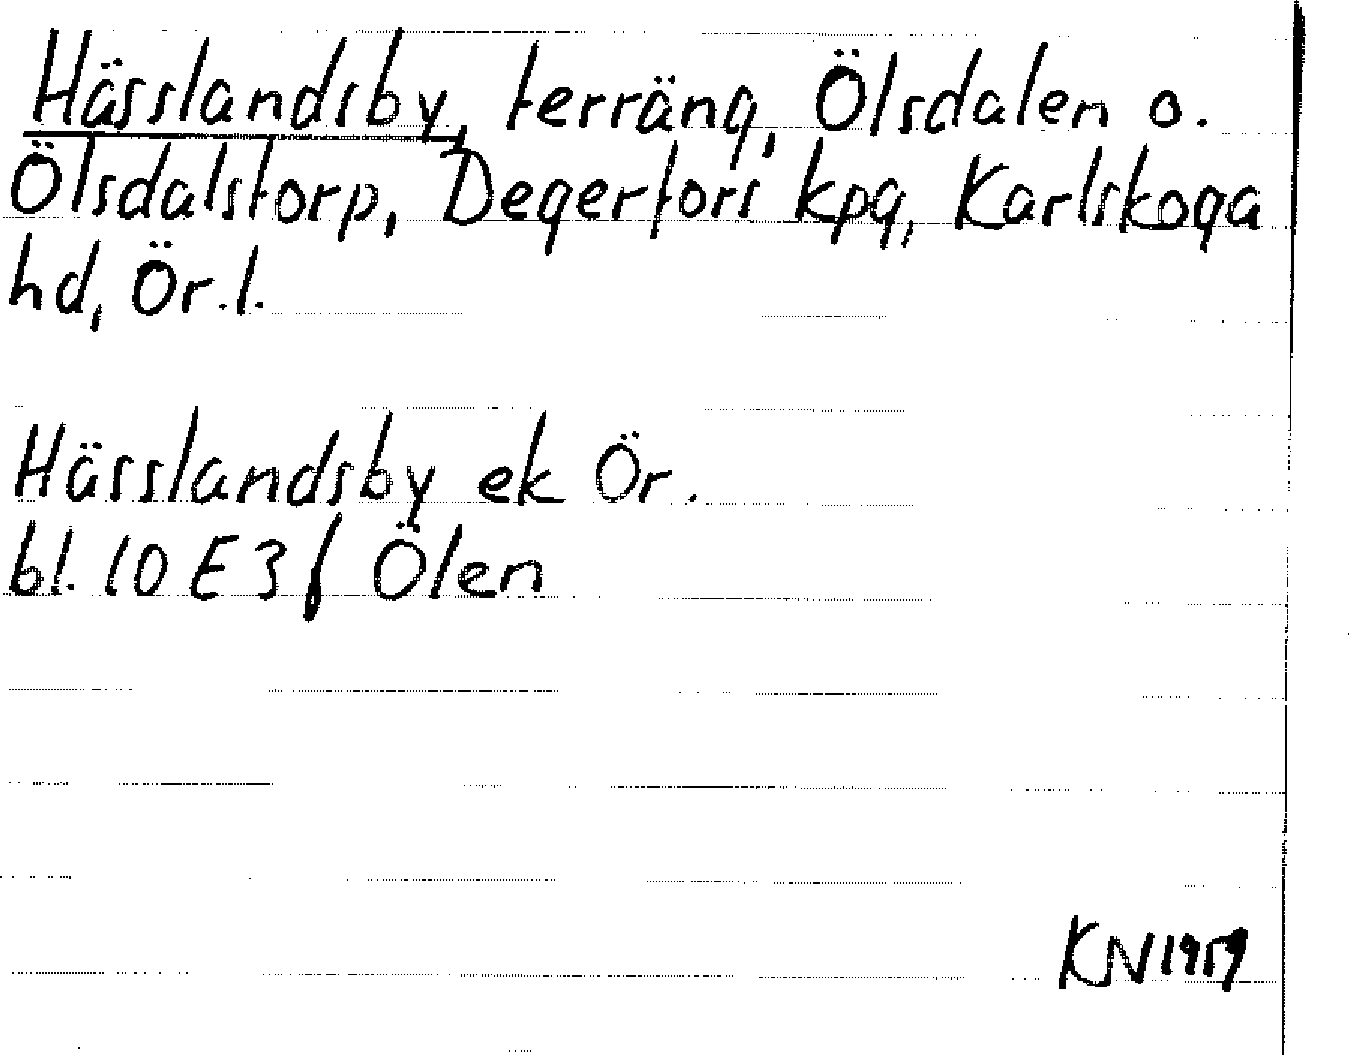 Hässlandsby, terräng, Ölsdalen o.
Ölsdalstorp, Degerfors kpg, Karlskoga
hd, Ör. l.
Hässlandsby ek Ör.
bl. 10 E 3 f Ölen
KN 1959